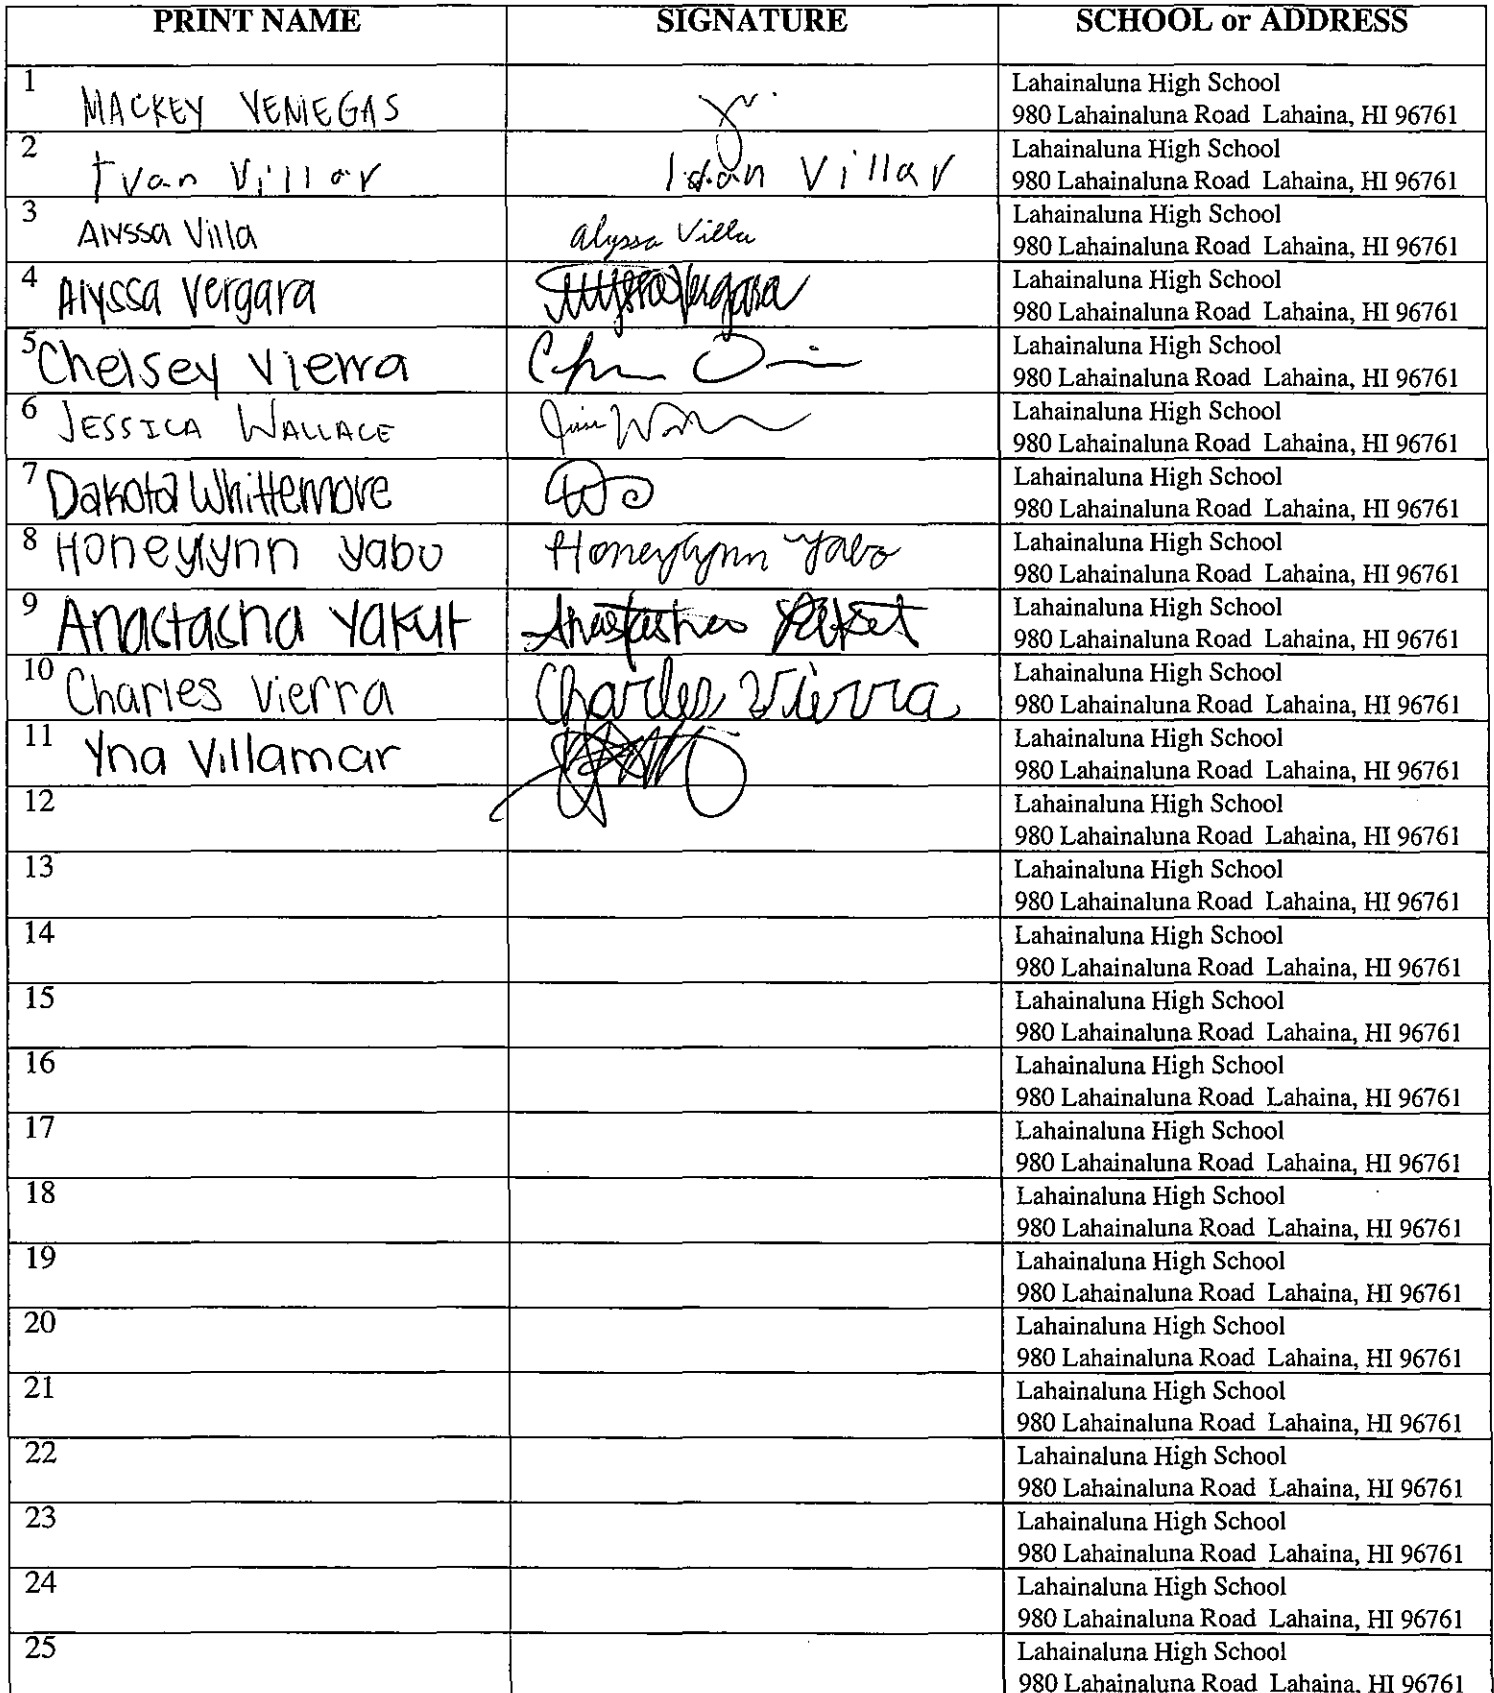 PRINT NAME SIGNATURE SCHOOL or ADDRESS
1 MACKEY VENEGAS Lahainaluna High School
980 Lahainaluna Road Lahaina, HI 96761
2 Ivan Villar Ivan Villar Lahainaluna High School
980 Lahainaluna Road Lahaina, HI 96761
3 Alyssa Villa Alyssa Villa Lahainaluna High School
980 Lahainaluna Road Lahaina, HI 96761
4 Alyssa Vergara Alyssa Vergara Lahainaluna High School
980 Lahainaluna Road Lahaina, HI 96761
5 Chelsey Vierra Lahainaluna High School
980 Lahainaluna Road Lahaina, HI 96761
6 JESSICA WALLACE Lahainaluna High School
980 Lahainaluna Road Lahaina, HI 96761
7 Dakota Whittemore Lahainaluna High School
980 Lahainaluna Road Lahaina, HI 96761
8 Honeylynn Yabo Honeylynn Yabo Lahainaluna High School
980 Lahainaluna Road Lahaina, HI 96761
9 Anastasha Yakut Lahainaluna High School
980 Lahainaluna Road Lahaina, HI 96761
10 Charles Vierra Charles Vierra Lahainaluna High School
980 Lahainaluna Road Lahaina, HI 96761
11 Yna Villamar Lahainaluna High School
980 Lahainaluna Road Lahaina, HI 96761
12 Lahainaluna High School
980 Lahainaluna Road Lahaina, HI 96761
13 Lahainaluna High School
980 Lahainaluna Road Lahaina, HI 96761
14 Lahainaluna High School
980 Lahainaluna Road Lahaina, HI 96761
15 Lahainaluna High School
980 Lahainaluna Road Lahaina, HI 96761
16 Lahainaluna High School
980 Lahainaluna Road Lahaina, HI 96761
17 Lahainaluna High School
980 Lahainaluna Road Lahaina, HI 96761
18 Lahainaluna High School
980 Lahainaluna Road Lahaina, HI 96761
19 Lahainaluna High School
980 Lahainaluna Road Lahaina, HI 96761
20 Lahainaluna High School
980 Lahainaluna Road Lahaina, HI 96761
21 Lahainaluna High School
980 Lahainaluna Road Lahaina, HI 96761
22 Lahainaluna High School
980 Lahainaluna Road Lahaina, HI 96761
23 Lahainaluna High School
980 Lahainaluna Road Lahaina, HI 96761
24 Lahainaluna High School
980 Lahainaluna Road Lahaina, HI 96761
25 Lahainaluna High School
980 Lahainaluna Road Lahaina, HI 96761